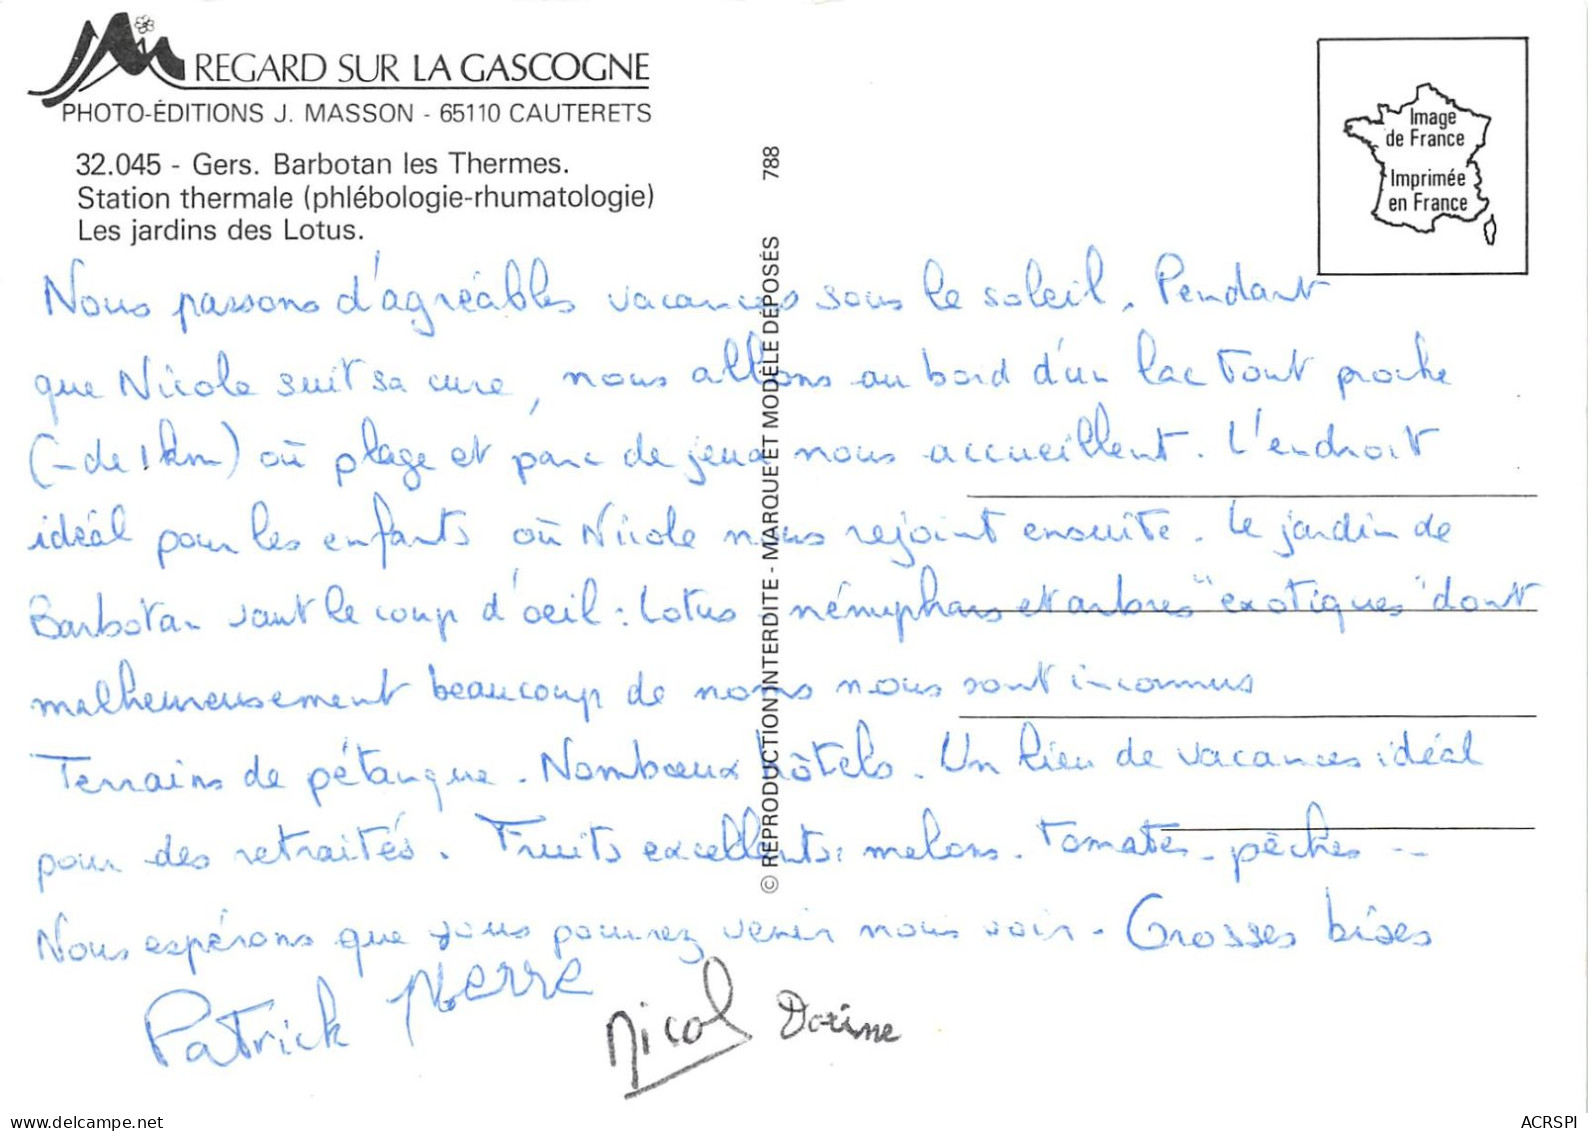 REGARD SUR LA GASCOGNE
PHOTO-ÉDITIONS J. MASSON - 65110 CAUTERETS
32.045 - Gers. Barbotan les Thermes.
Station thermale (phlébologie-rhumatologie)
Les jardins des Lotus.
Image
de France
Imprimée
en France
© REPRODUCTION INTERDITE - MARQUE ET MODÈLE DÉPOSÉS 788
Nous passons d'agréables vacances sous le soleil. Pendant
que Nicole suit sa cure, nous allons au bord d'un lac tout proche
(- de 1 km) où plage et parc de jeux nous accueillent. L'endroit
idéal pour les enfants où Nicole nous rejoint ensuite. Le jardin de
Barbotan vaut le coup d'oeil : Lotus nénuphars et arbres "exotiques" dont
malheureusement beaucoup de noms nous sont inconnus
Terrains de pétanque. Nombreux hôtels. Un lieu de vacances idéal
pour des retraités. Fruits excellents: melons. Tomates - pêches --
Nous espérons que vous pourrez venir nous voir. Grosses bises
Patrick Pierre Nicol Dorine
ACRSPI